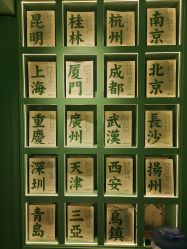 昆明 桂林 杭州 南京
上海 厦門 成都 北京
重慶 廣州 武漢 長沙
深圳 天津 西安 揚州
青島 三亞 烏鎮